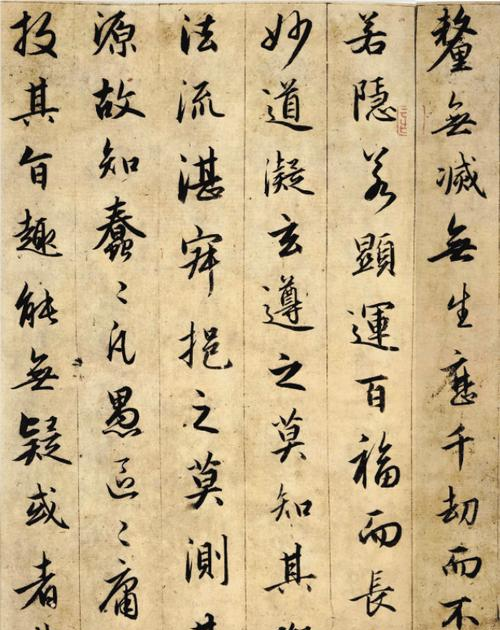 釐無滅無生歷千劫而不
若隱若顯運百福而長
妙道凝玄遵之莫知其
法流湛寂挹之莫測其
源故知蠢〻凡愚區〻庸
投其旨趣能無疑或者